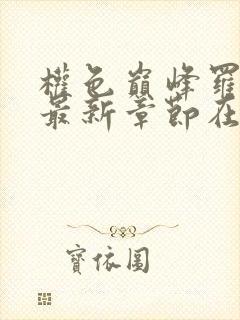 權色巔峰羅
最新章節在
寶依圖